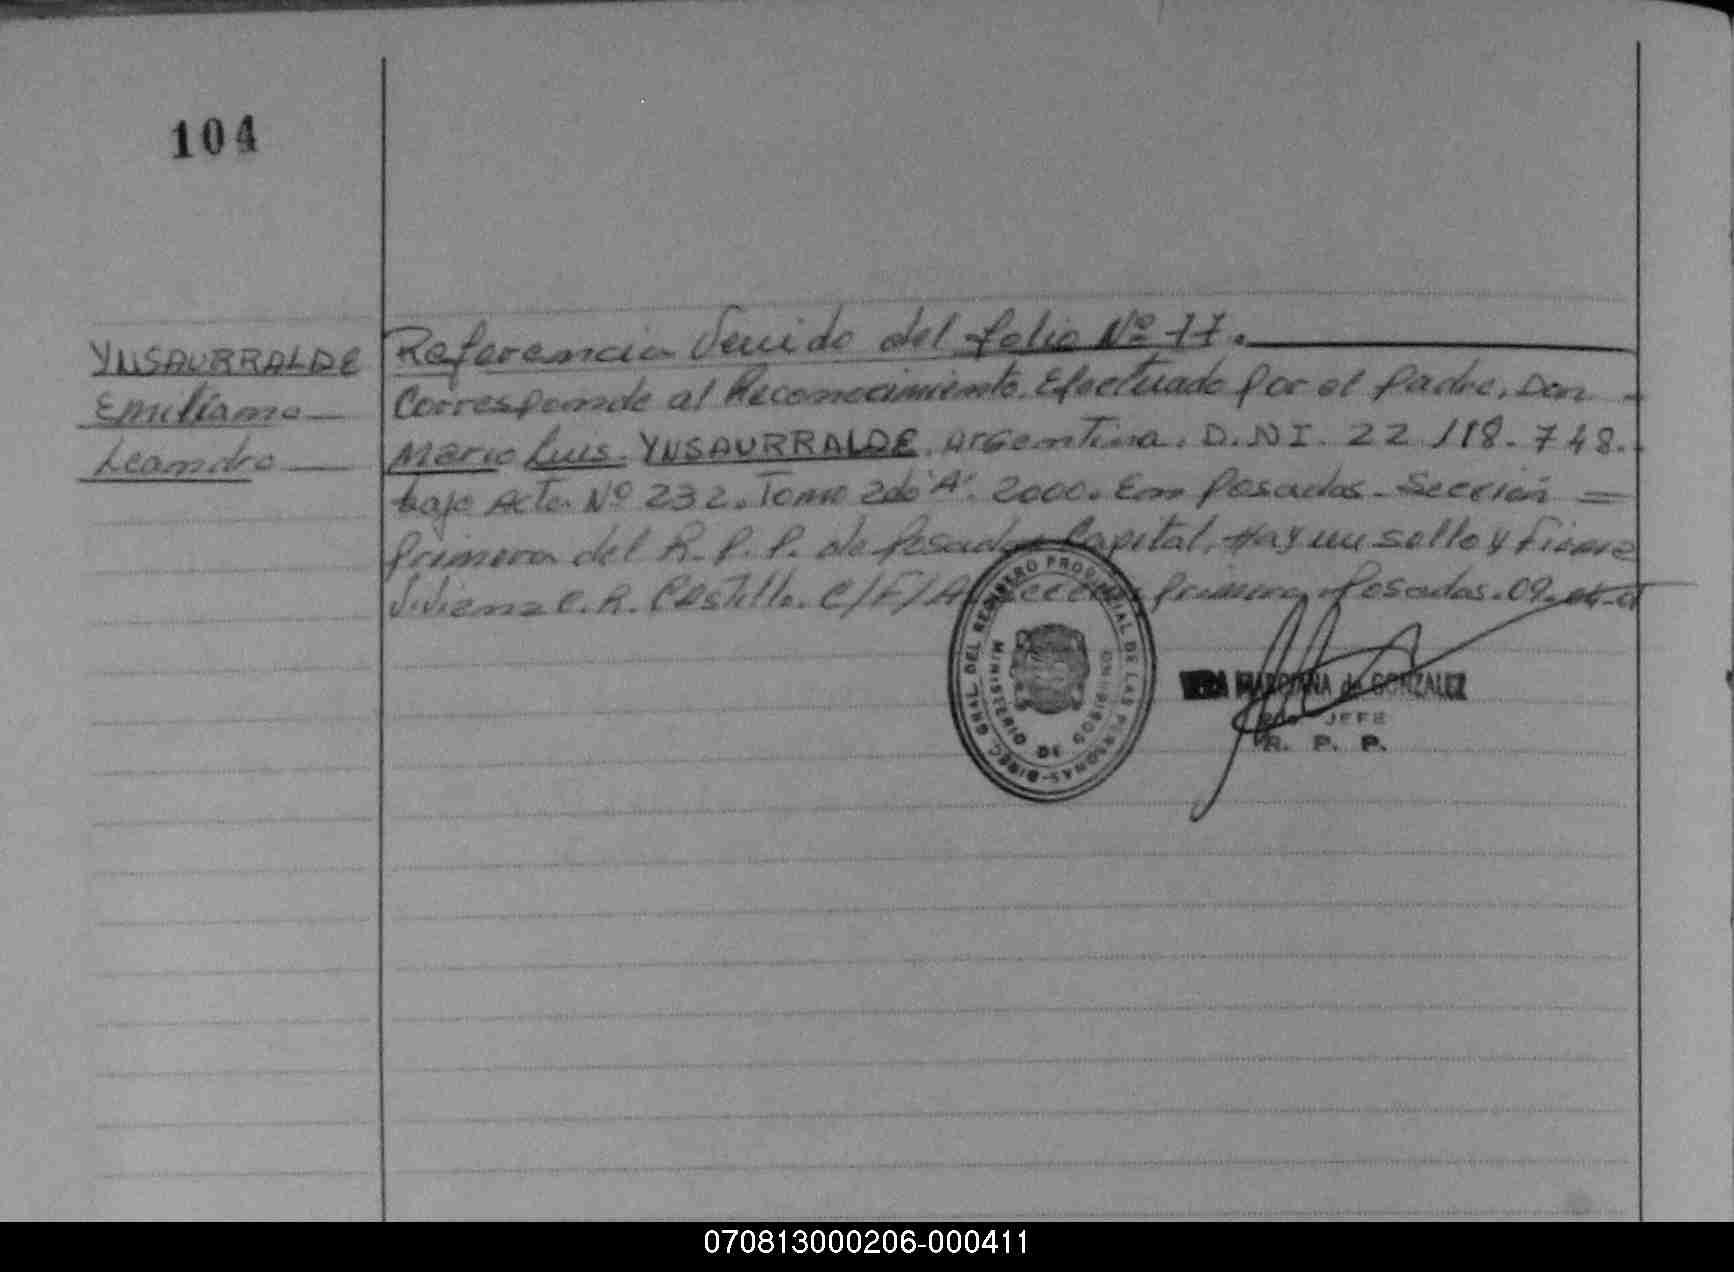 104
YNSAURRALDE
Emiliano
Leandro
Referencia Venido del folio Nº 77.
Corresponde al Reconocimiento. Efectuado por el padre, Don
Mario Luis. YNSAURRALDE. Argentino. D.N I. 22 118. 748.
bajo Acta. Nº 232. Tomo 2do "A". 2000. En Posadas. Sección
primera del R. P. P. de Posadas Capital, Hay un sello y firma
Viviana C. R. Castillo. C/F/A primera Posadas. 09.
DIREC. GRAL. DEL REGISTRO PROVINCIAL DE LAS PERSONAS
MINISTERIO DE GOBIERNO
MARCIANA de GONZALEZ
JEFE
R. P. P.
070813000206-000411